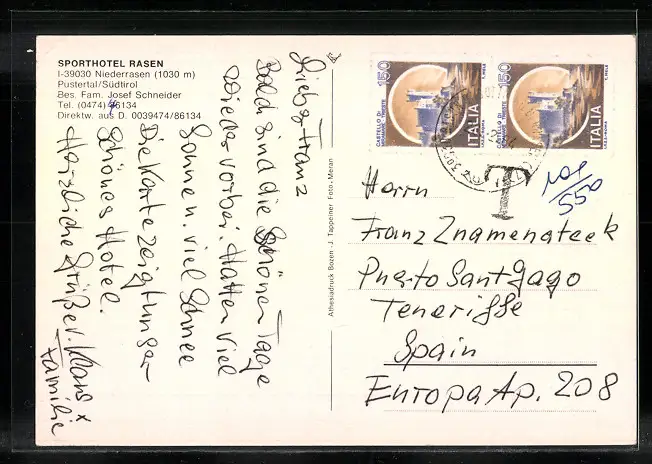 SPORTHOTEL RASEN
I-39030 Niederrasen (1030 m)
Pustertal/Südtirol
Bes. Fam. Josef Schneider
Tel. (0474) 46134
Direktw. aus D. 0039474/86134
Liebe Franz
Bald sind die schönen Tage
wieder vorbei. Hatten viel
Sonne u. viel Schnee
Die Karte zeigt unser
Schönes Hotel.
Herzliche Grüße v. Klaus +
Familie
Athesiadruck Bozen - J. Tappeiner Foto - Meran
150
CASTELLO DI
MIRAMARE TRIESTE
ITALIA
I.P.Z.S. ROMA
150
CASTELLO DI
MIRAMARE TRIESTE
ITALIA
I.P.Z.S. ROMA
T
550
Herrn
Franz Znamenateek
Puerto Santgago
Teneriffe
Spain
Europa Ap. 208